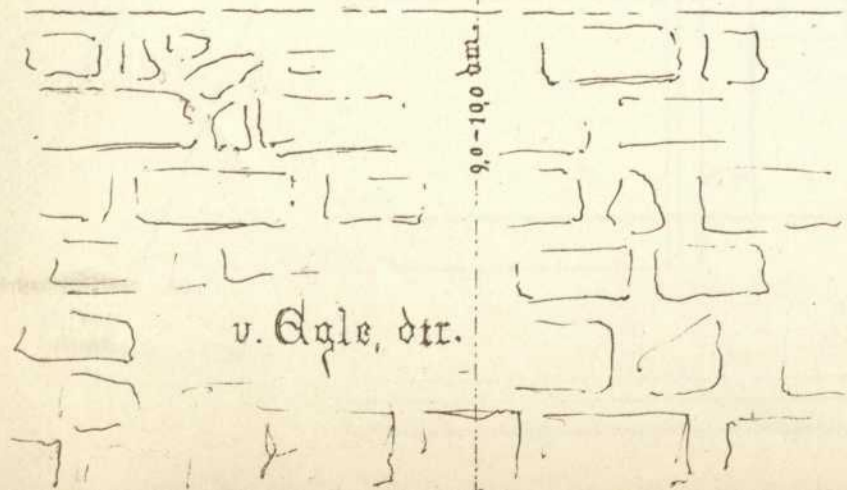 9,0-10,0 dm.
v. Egle, dir.